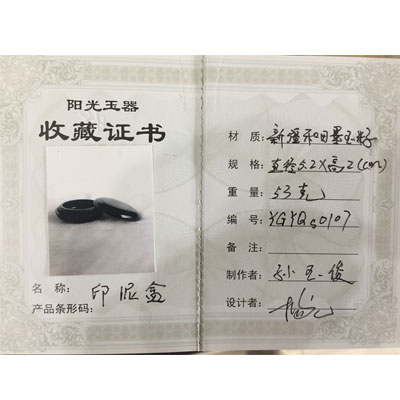 阳光玉器
收藏证书
名 称: 印泥盒
产品条形码:
材 质: 新疆和田墨玉籽
规 格: 直径5.2X高2(cm)
重 量: 53克
编 号: YGYQS0107
备 注:
制作者: 孙玉俊
设计者: